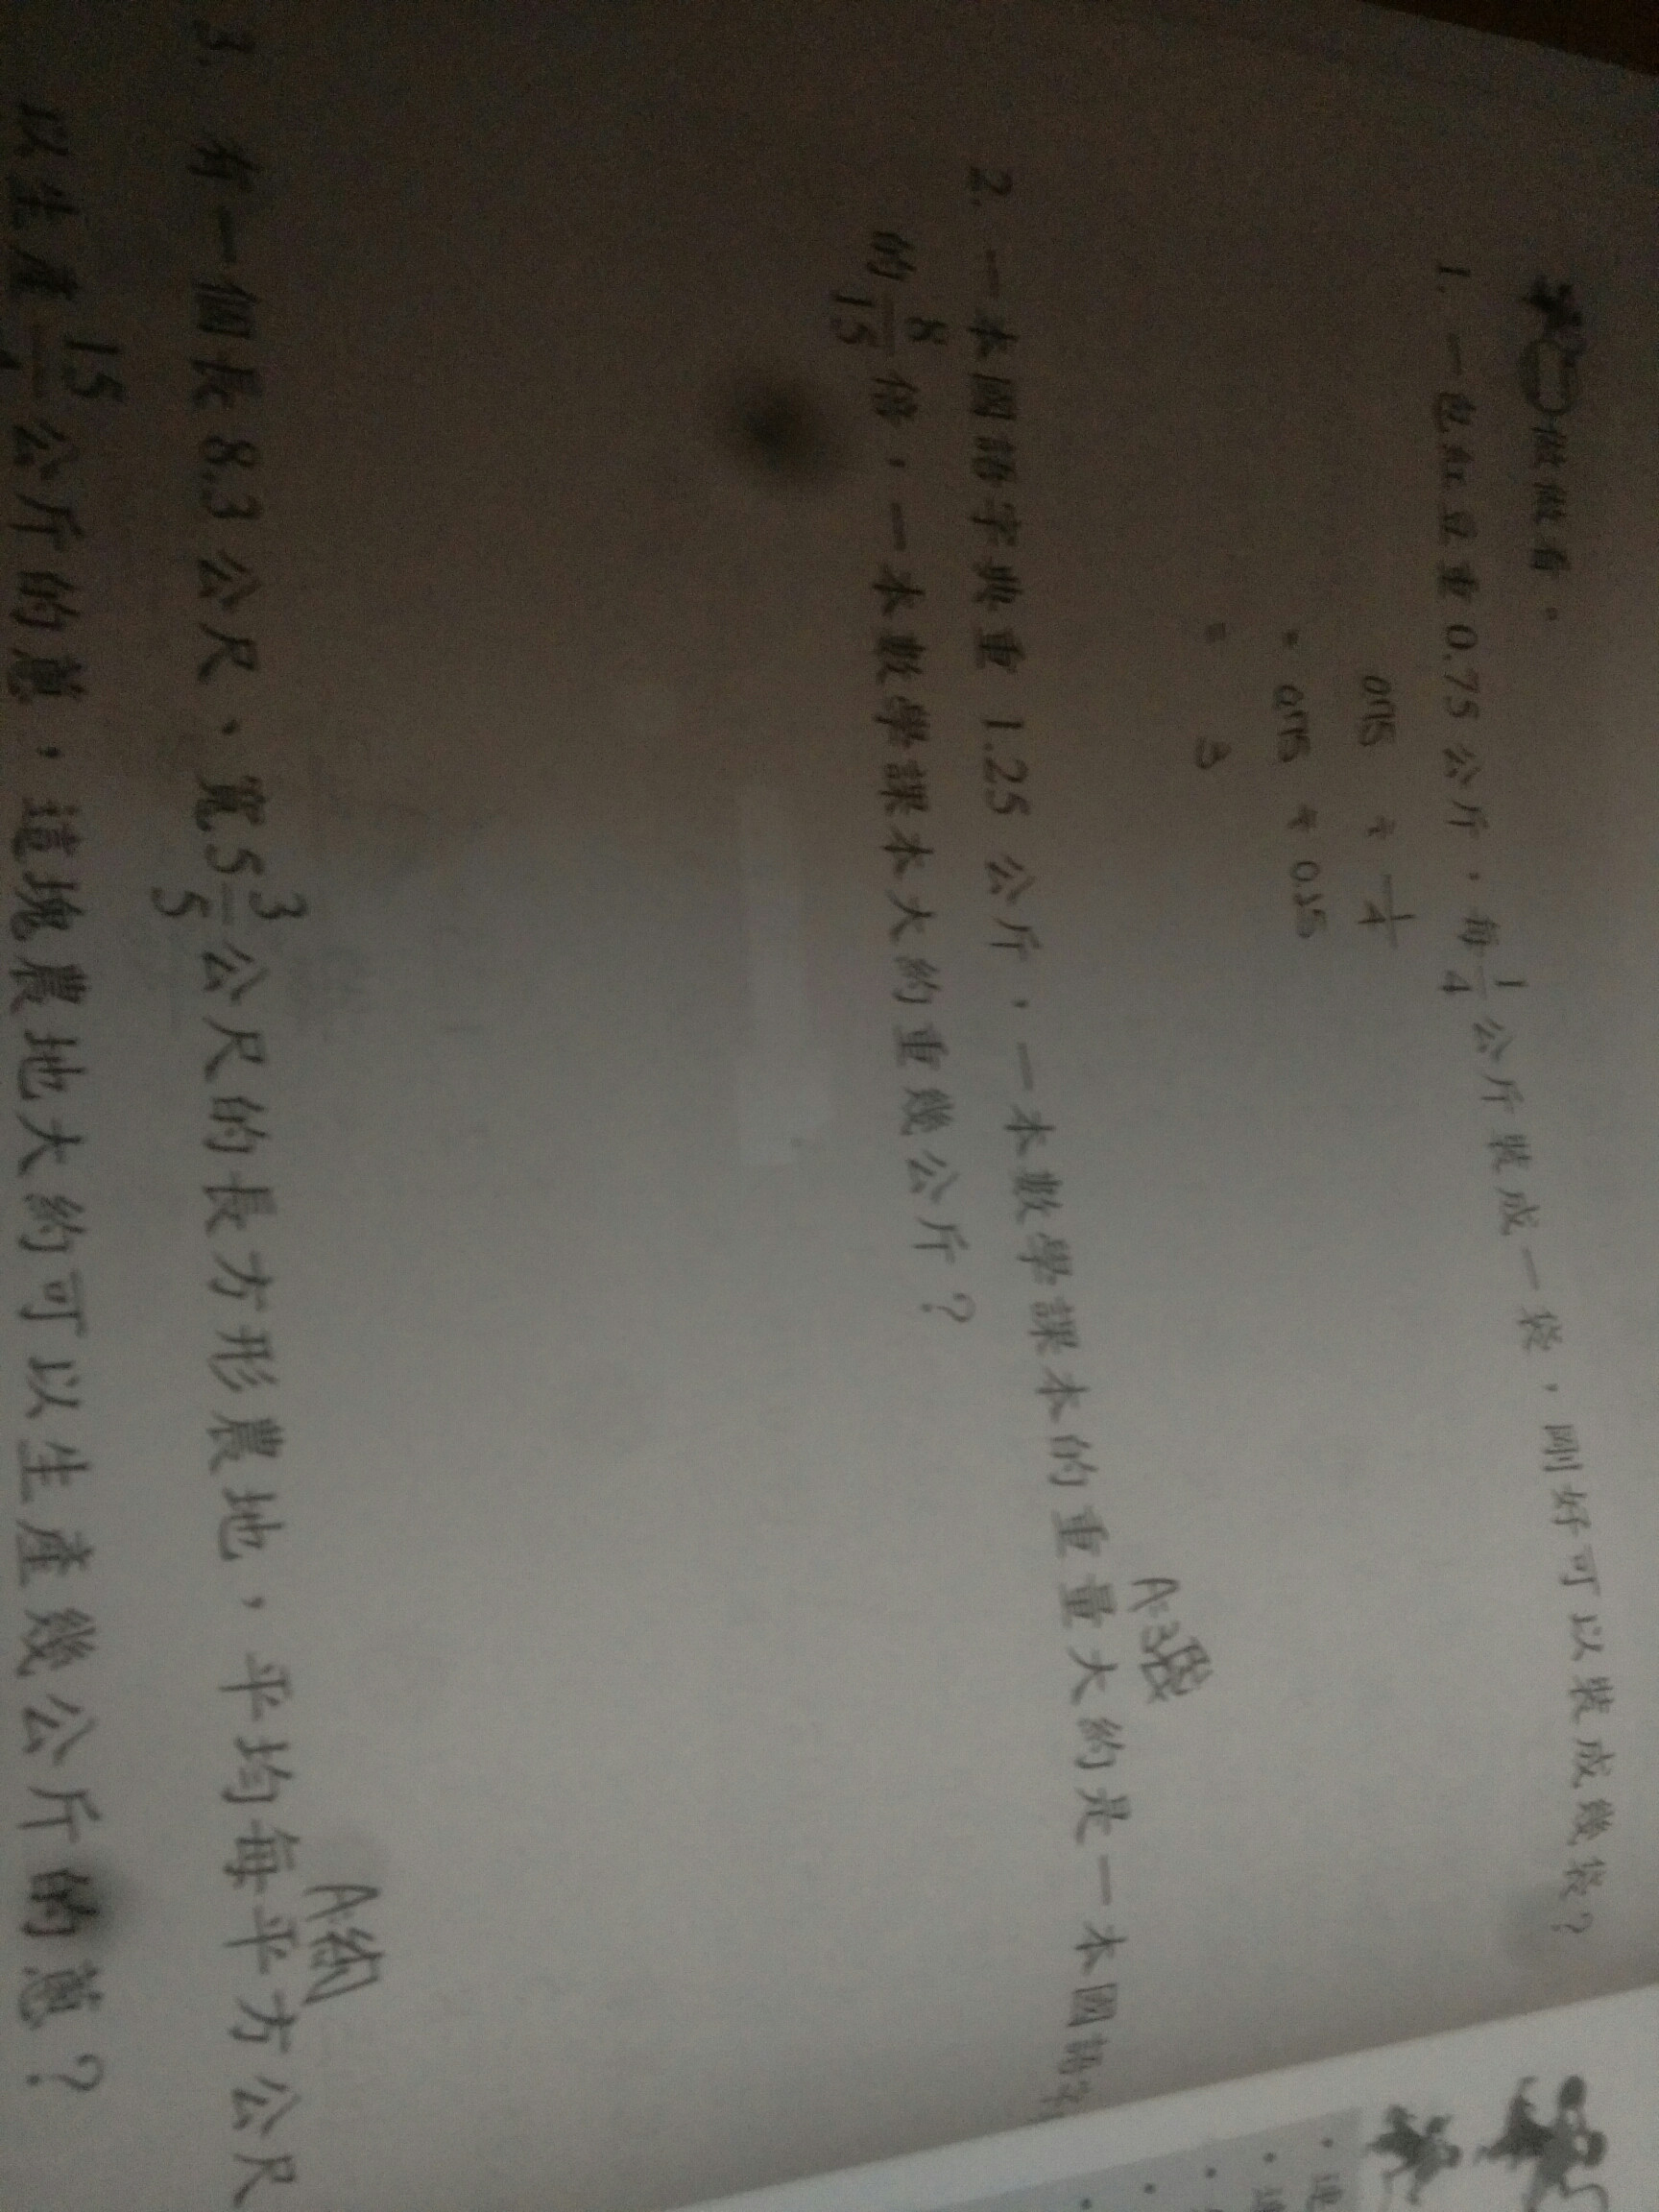 做做看。
1. 一包紅豆重 0.75 公斤，每 1/4 公斤裝成一袋，剛好可以裝成幾袋？
0.75 ÷ 1/4
= 0.75 ÷ 0.25
= 3
A:3袋
2. 一本國語字典重 1.25 公斤，一本數學課本的重量大約是一本國語字
的 8/15 倍，一本數學課本大約重幾公斤？
A:約
3. 有一個長 8.3 公尺、寬 5 3/5 公尺的長方形農地，平均每平方公尺
以生產 15/ 公斤的蔥，這塊農地大約可以生產幾公斤的蔥？